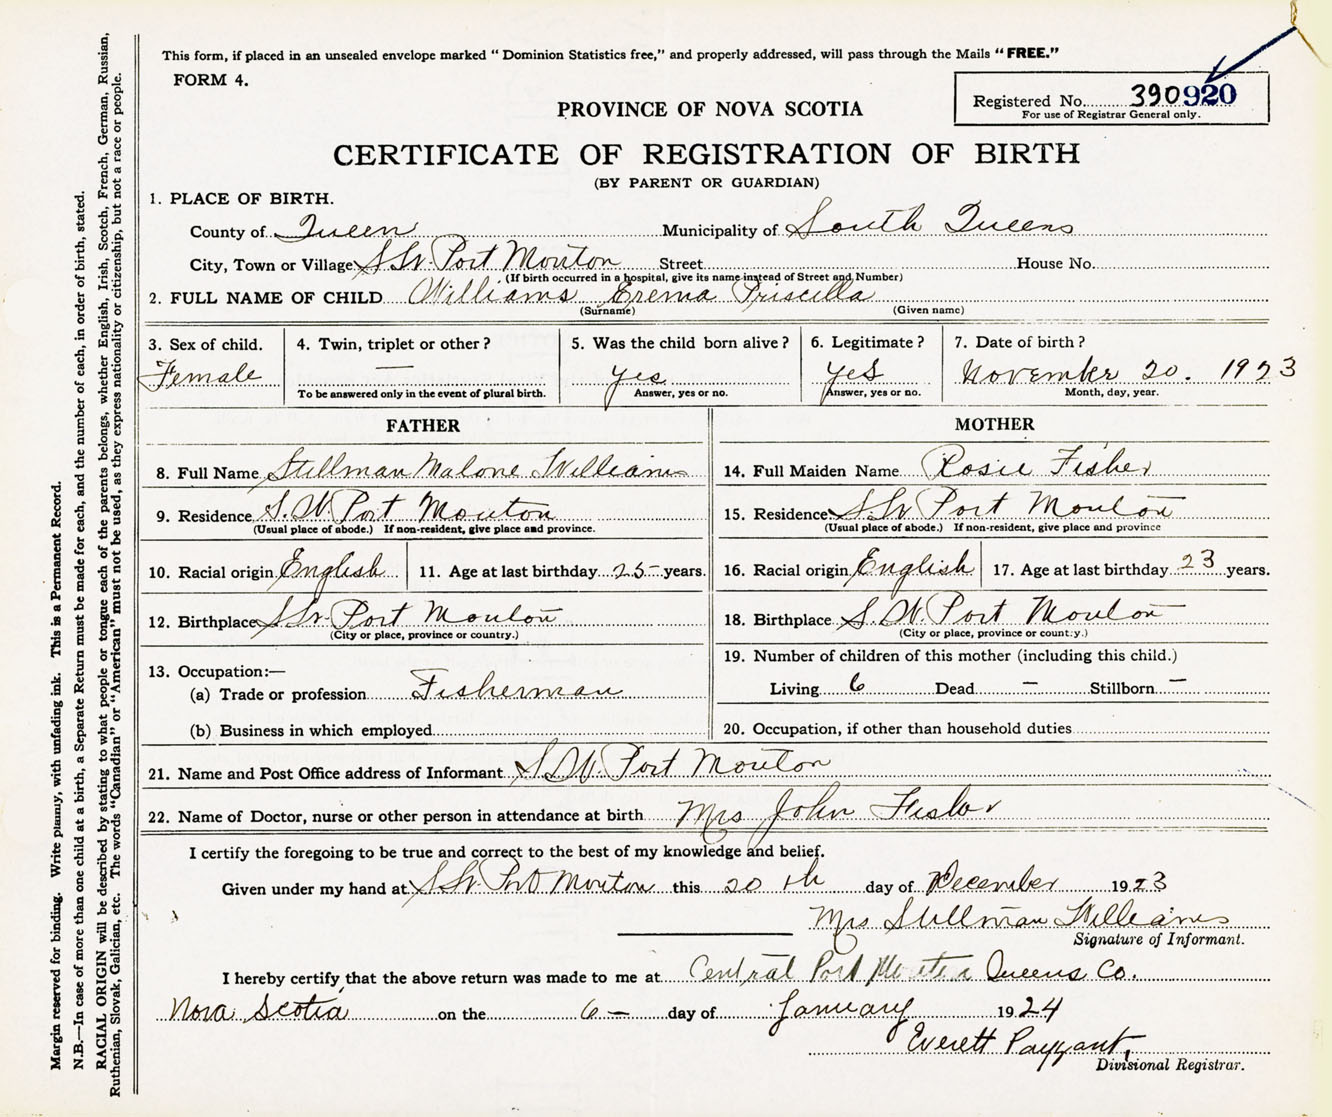 This form, if placed in an unsealed envelope marked “ Dominion Statistics free,” and properly addressed, will pass through the Mails “ FREE.”
FORM 4.
Registered No. 390920
For use of Registrar General only.
PROVINCE OF NOVA SCOTIA
CERTIFICATE OF REGISTRATION OF BIRTH
(BY PARENT OR GUARDIAN)
1. PLACE OF BIRTH.
County of Queen Municipality of South Queens
City, Town or Village S.W. Port Mouton Street House No.
(If birth occurred in a hospital, give its name instead of Street and Number)
2. FULL NAME OF CHILD Williams Erema Priscilla
(Surname) (Given name)
3. Sex of child. 4. Twin, triplet or other? 5. Was the child born alive? 6. Legitimate? 7. Date of birth?
Female — yes yes November 20. 1923
To be answered only in the event of plural birth. Answer, yes or no. Answer, yes or no. Month, day, year.
FATHER MOTHER
8. Full Name Stillman Malone Williams 14. Full Maiden Name Rosie Fisher
9. Residence S.W. Port Mouton 15. Residence S.W. Port Mouton
(Usual place of abode.) If non-resident, give place and province. (Usual place of abode.) If non-resident, give place and province
10. Racial origin English 11. Age at last birthday 25 years. 16. Racial origin English 17. Age at last birthday 23 years.
12. Birthplace S.W. Port Mouton 18. Birthplace S.W. Port Mouton
(City or place, province or country.) (City or place, province or country.)
13. Occupation:— 19. Number of children of this mother (including this child.)
(a) Trade or profession Fisherman Living 6 Dead — Stillborn —
(b) Business in which employed 20. Occupation, if other than household duties
21. Name and Post Office address of Informant S.W. Port Mouton
22. Name of Doctor, nurse or other person in attendance at birth Mrs John Fisher
I certify the foregoing to be true and correct to the best of my knowledge and belief.
Given under my hand at S.W. Port Mouton this 20 th day of December 1923
Mrs Stillman Williams
Signature of Informant.
I hereby certify that the above return was made to me at Central Port Mouton Queens Co.
Nova Scotia on the 6 — day of January 1924
Everett Payzant,
Divisional Registrar.
Margin reserved for binding. Write plainly, with unfading ink. This is a Permanent Record.
N.B.—In case of more than one child at a birth, a Separate Return must be made for each, and the number of each, in order of birth, stated.
RACIAL ORIGIN will be described by stating to what people or tongue each of the parents belongs, whether English, Irish, Scotch, French, German, Russian,
Ruthenian, Slovak, Galician, etc. The words “Canadian” or “American” must not be used, as they express nationality or citizenship, but not a race or people.